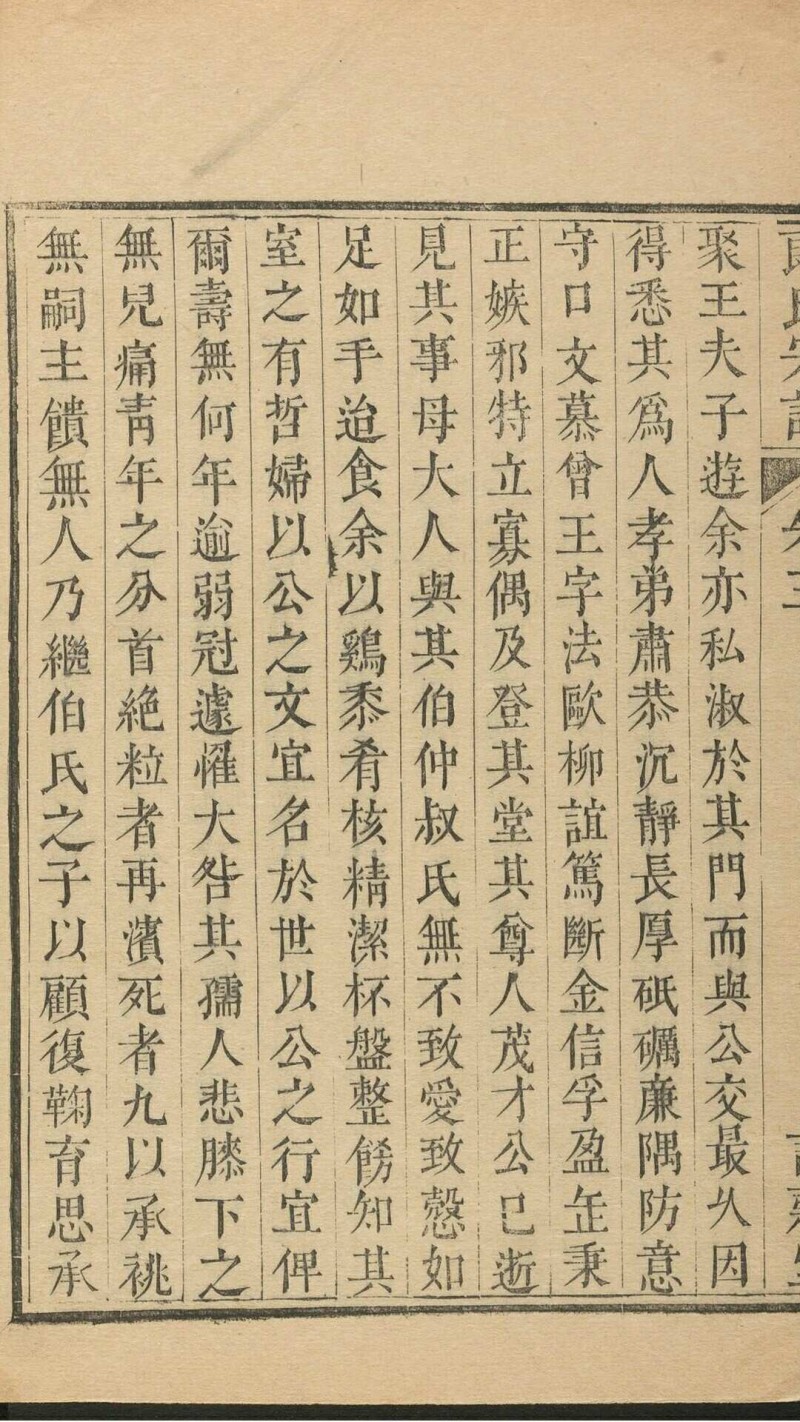 聚王夫子遊余亦私淑於其門而與公交最久因
得悉其爲人孝弟肅恭沉靜長厚砥礪亷隅防意
守口文慕曾王字法歐柳誼篤斷金信孚盈缶秉
正嫉邪特立寡偶及登其堂其尊人茂才公已逝
見其事母大人與其伯仲叔氏無不致愛致慤如
足如手迨食余以鷄黍肴核精潔杯盤整餝知其
室之有哲婦以公之文宜名於世以公之行宜俾
爾壽無何年逾弱冠遽罹大咎其孺人悲膝下之
無兒痛靑年之分首絶粒者再濱死者九以承祧
無嗣主饋無人乃繼伯氏之子以顧復鞠育思承